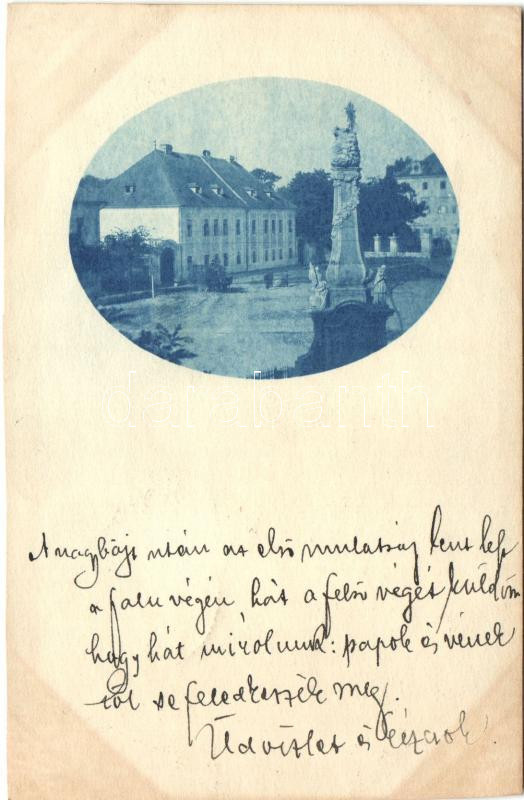 darabanth
A nagybőjt után az első mulatság lent
a falu végén hát a felső végét küldöm
hogy hát mirolunk: papok és vének
ről se feledkezzék meg.
Üdvözlet és